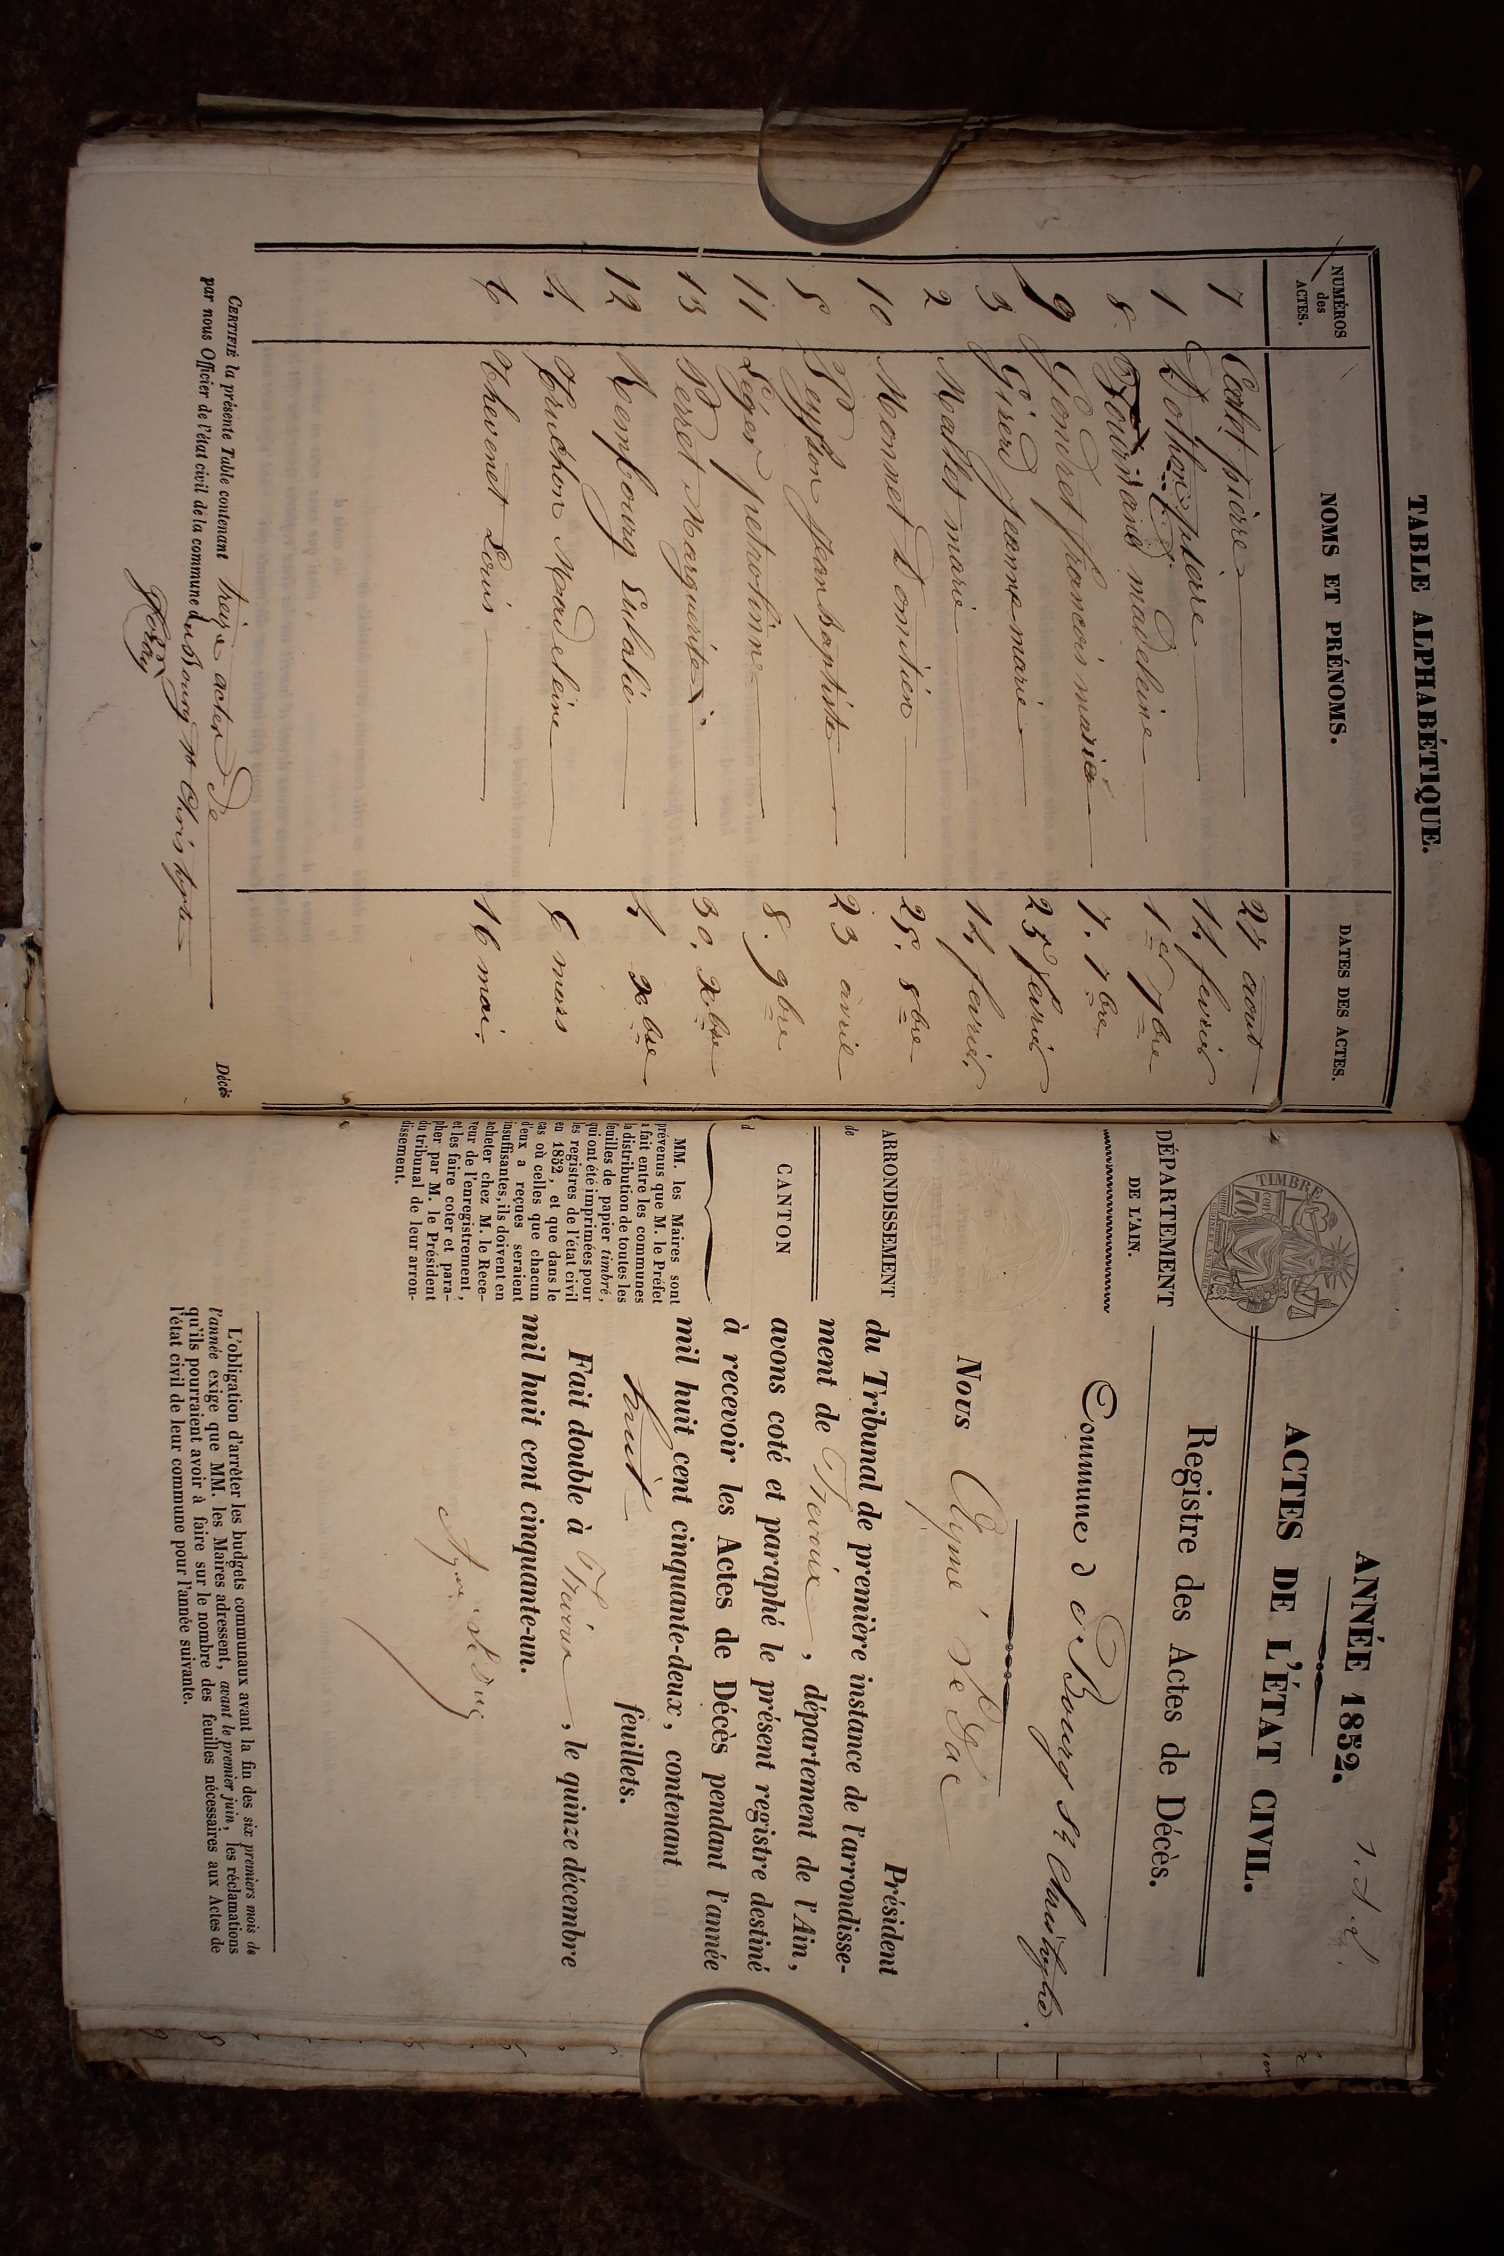 TABLE ALPHABÉTIQUE.
NUMÉROS
des
ACTES.
NOMS ET PRÉNOMS.
DATES DES ACTES.
7 pierre 27 aout
1 pierre 14 fevrier
8 madeleine 1er 7bre
9 Gondret francois marie 7. 7bre
3 Girerd jeanne marie 25 fevrier
2 Mallet marie 14 fevrier.
10 Monnet Domitien 25. 8bre
5 Peysson jean baptiste 23 avril
11 Léger petroline 8. 9bre
13 Perret Marguerite 30. xbre
12 Rembourg Eulalie 4. xbre
4. Truchon Madeleine 6 mars
6 Thevenet Louis 16 mai.
CERTIFIÉ la présente Table contenant treize actes de
par nous Officier de l'état civil de la commune du Bourg St Christophe
Décès
1. d. d.
ANNÉE 1852.
ACTES DE L'ÉTAT CIVIL.
TIMBRE
70
Registre des Actes de Décès.
DÉPARTEMENT
DE L'AIN.
Commune de Bourg St Christophe.
Nous Aymé, Président
ARRONDISSEMENT
de
CANTON
d
du Tribunal de première instance de l'arrondisse-
ment de Trévoux, département de l'Ain,
avons coté et paraphé le présent registre destiné
à recevoir les Actes de Décès pendant l'année
mil huit cent cinquante-deux, contenant
huit feuillets.
Fait double à Trévoux, le quinze décembre
mil huit cent cinquante-un.
MM. les Maires sont
prévenus que M. le Préfet
a fait entre les communes
la distribution de toutes les
feuilles de papier timbré,
qui ont été imprimées pour
les registres de l'état civil
en 1852, et que dans le
cas où celles que chacun
d'eux a reçues seraient
insuffisantes, ils doivent en
acheter chez M. le Rece-
veur de l'enregistrement,
et les faire coter et para-
pher par M. le Président
du tribunal de leur arron-
dissement.
L'obligation d'arrêter les budgets communaux avant la fin des six premiers mois de
l'année exige que MM. les Maires adressent, avant le premier juin, les réclamations
qu'ils pourraient avoir à faire sur le nombre des feuilles nécessaires aux Actes de
l'état civil de leur commune pour l'année suivante.